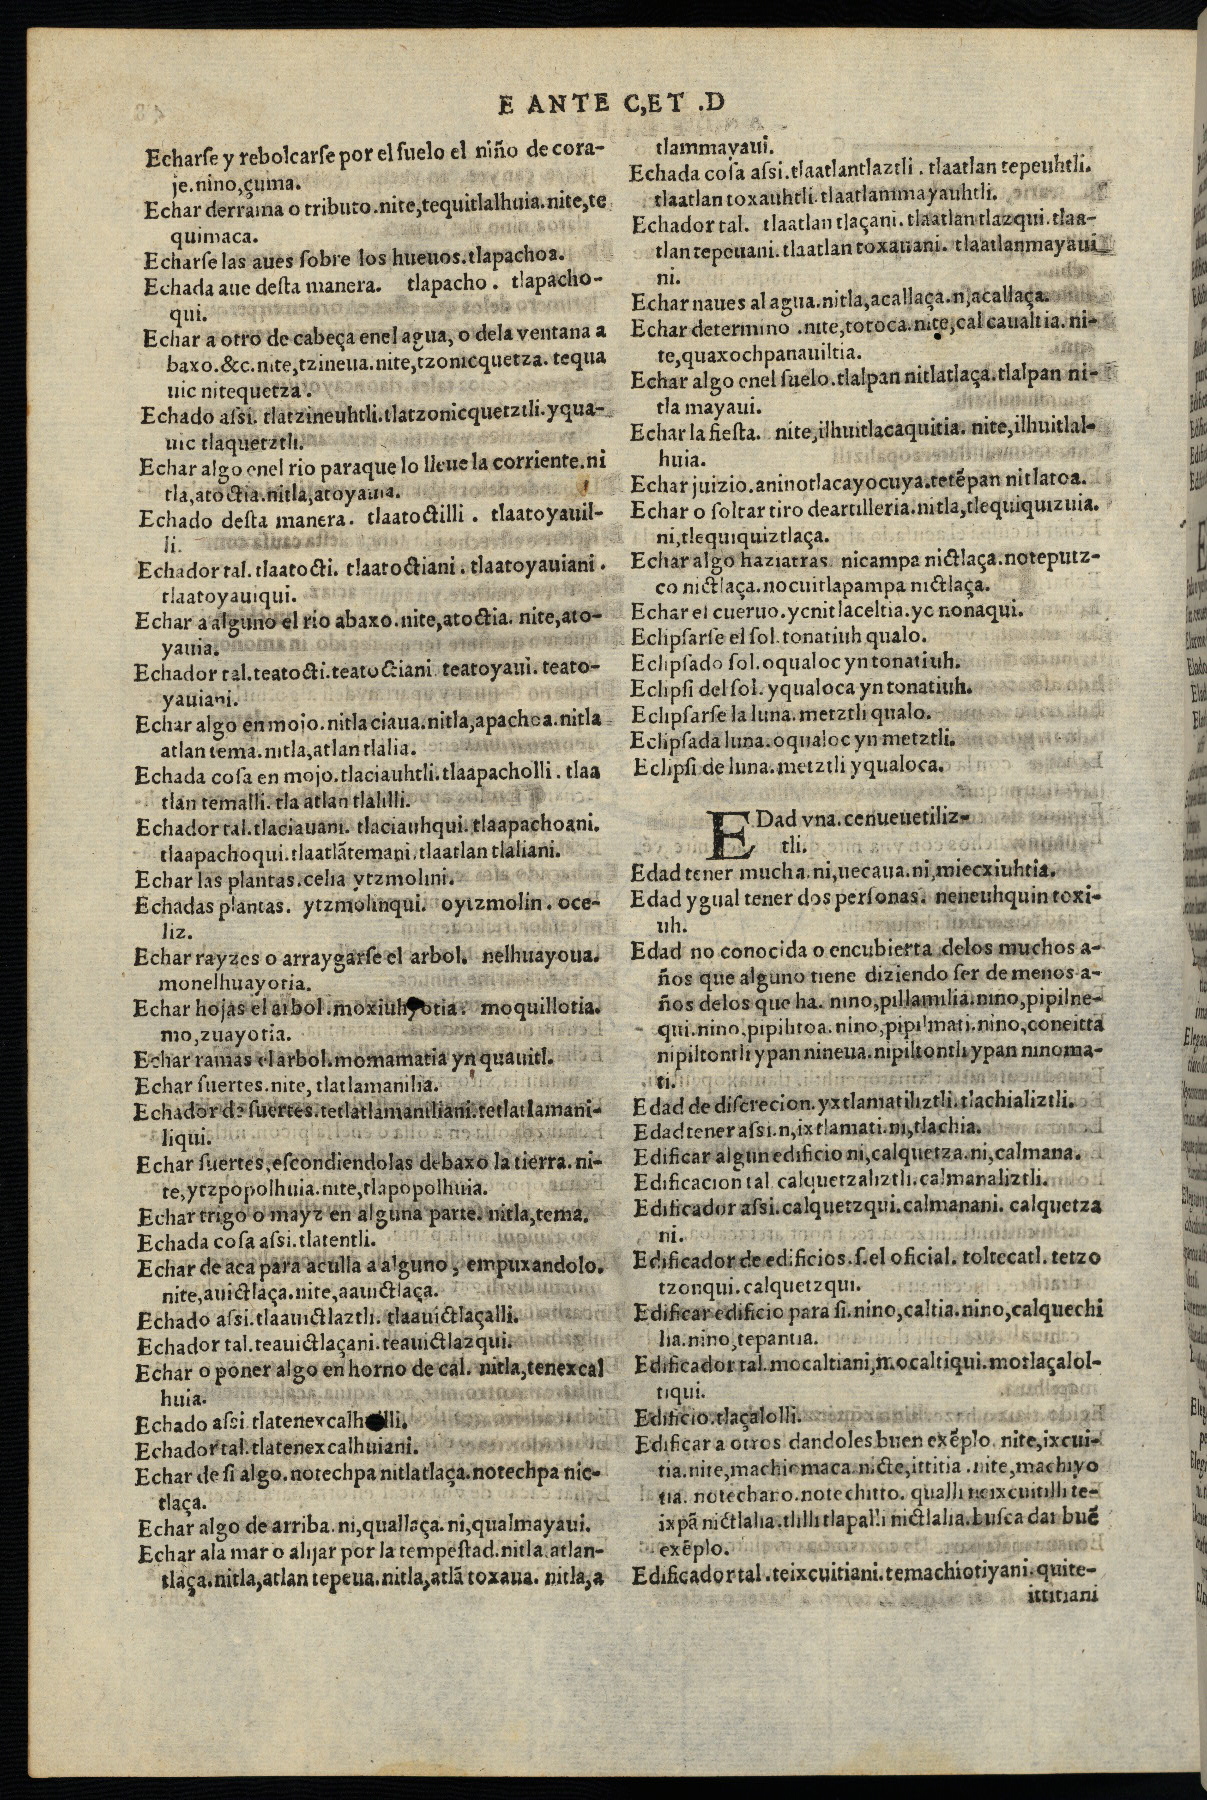 E ANTE C,ET .D
Echarſe y rebolcarſe por el ſuelo el niño de cora-
je.nino,çuma.
Echar derrama o tributo.nite,tequitlalhuia.nite,te
quimaca.
Echarſe las aues ſobre los hueuos.tlapachoa.
Echada aue deſta manera. tlapacho. tlapacho-
qui.
Echar a otro de cabeça enel agua, o dela ventana a
baxo.&c.nite,tzineua.nite,tzonicquetza. tequa
uic nitequetza.
Echado aſsi. tlatzineuhtli.tlatzonicquetztli.yqua-
uic tlaquetztli.
Echar algo enel rio paraque lo lleue la corriente.ni
tla,atoctia.nitla,atoyauia.
Echado deſta manera. tlaatoctilli. tlaatoyauil-
li.
Echador tal.tlaatocti. tlaatoctiani. tlaatoyauiani.
tlaatoyauiqui.
Echar a alguno el rio abaxo.nite,atoctia. nite,ato-
yauia.
Echador tal.teatocti.teatoctiani teatoyaui. teato-
yauiani.
Echar algo en mojo.nitla ciaua.nitla,apachoa.nitla
atlan tema.nitla,atlan tlalia.
Echada coſa en mojo.tlaciauhtli.tlaapacholli. tlaa
tlan temalli. tla atlan tlalilli.
Echador tal.tlaciauani. tlaciauhqui.tlaapachoani.
tlaapachoqui.tlaatlãtemani.tlaatlan tlaliani.
Echar las plantas.celia ytzmolini.
Echadas plantas. ytzmolinqui. oytzmolin. oce-
liz.
Echar rayzes o arraygarſe el arbol. nelhuayoua.
monelhuayotia.
Echar hojas el arbol.moxiuhyotia. moquillotia.
mo,zuayotia.
Echar ramas el arbol.momamatia yn quauitl.
Echar ſuertes.nite, tlatlamanilia.
Echador de ſuertes.tetlatlamaniliani.tetlatlamani-
liqui.
Echar ſuertes,eſcondiendolas debaxo la tierra. ni-
te,ytzpopolhuia.nite,tlapopolhuia.
Echar trigo o mayz en alguna parte. nitla,tema.
Echada coſa aſsi.tlatentli.
Echar de aca para aculla a alguno, empuxandolo.
nite,auictlaça.nite,aauictlaça.
Echado aſsi.tlaauictlaztli. tlaauictlaçalli.
Echador tal.teauictlaçani.teauictlazqui.
Echar o poner algo en horno de cal. nitla,tenexcal
huia.
Echado aſsi tlatenexcalhuilli.
Echador tal.tlatenexcalhuiani.
Echar de ſi algo.notechpa nitlatlaça.notechpa nic-
tlaça.
Echar algo de arriba.ni,quallaça.ni,qualmayaui.
Echar ala mar o alijar por la tempeſtad.nitla.atlan-
tlaça.nitla,atlan tepeua.nitla,atlã toxaua. nitla,a
tlammayaui.
Echada coſa aſsi.tlaatlantlaztli. tlaatlan tepeuhtli.
tlaatlan toxauhtli.tlaatlammayauhtli.
Echador tal. tlaatlan tlaçani.tlaatlan tlazqui.tlaa-
tlan tepeuani.tlaatlan toxauani. tlaatlanmayaui
ni.
Echar naues al agua.nitla,acallaça.n,acallaça.
Echar determino.nite,totoca.nite,cal caualtia. ni-
te,quaxochpanauiltia.
Echar algo enel ſuelo.tlalpan nitlatlaça.tlalpan ni-
tla mayaui.
Echar la fieſta. nite,ilhuitlacaquitia. nite,ilhuitlal-
huia.
Echar juizio.aninotlacayocuya.tetẽpan nitlatoa.
Echar o ſoltar tiro deartilleria.nitla,tlequiquizuia.
ni,tlequiquiztlaça.
Echar algo haziatras nicampa nictlaça.noteputz-
co nictlaça.nocuitlapampa nictlaça.
Echar el cueruo.ycnitlaceltia.yc nonaqui.
Eclipſarſe el ſol.tonatiuh qualo.
Eclipſado ſol.oqualoc yn tonatiuh.
Eclipſi del ſol.yqualoca yn tonatiuh.
Eclipſarſe la luna.metztli qualo.
Eclipſada luna.oqualoc yn metztli.
Eclipſi de luna.metztli yqualoca.
EDad vna.cenueuetiliz-
tli.
Edad tener mucha.ni,uecaua.ni,miecxiuhtia.
Edad ygual tener dos perſonas. neneuhquin toxi-
uh.
Edad no conocida o encubierta delos muchos a-
ños que alguno tiene diziendo ſer de menos a-
ños delos que ha. nino,pillamilia.nino,pipilne-
qui.nino,pipiltoa.nino,pipilmati.nino,coneitta
nipiltontli ypan nineua.nipiltontli ypan ninoma-
ti.
Edad de diſcrecion.yxtlamatiliztli.tlachializtli.
Edad tener aſsi.n,ixtlamati.ni,tlachia.
Edificar algun edificio ni,calquetza.ni,calmana.
Edificacion tal calquetzaliztli.calmanaliztli.
Edificador aſsi.calquetzqui.calmanani. calquetza
ni.
Edificador de edificios.ſ.el oficial. toltecatl. tetzo
tzonqui.calquetzqui.
Edificar edificio para ſi.nino,caltia.nino,calquechi
lia.nino,tepantia.
Edificador tal.mocaltiani,mocaltiqui.motlaçalol-
tiqui.
Edificio.tlaçalolli.
Edificar a otros dandoles buen exẽplo nite,ixcui-
tia.nite,machiomaca.nicte,ittitia.nite,machiyo
tia. notechano.notechitto. qualli neixcuitilli te-
ixpã nictlalia.tlilli tlapalli nictlalia.buſca dar buẽ
exẽplo.
Edificador tal.teixcuitiani.temachiotiyani.quite-
ittitiani